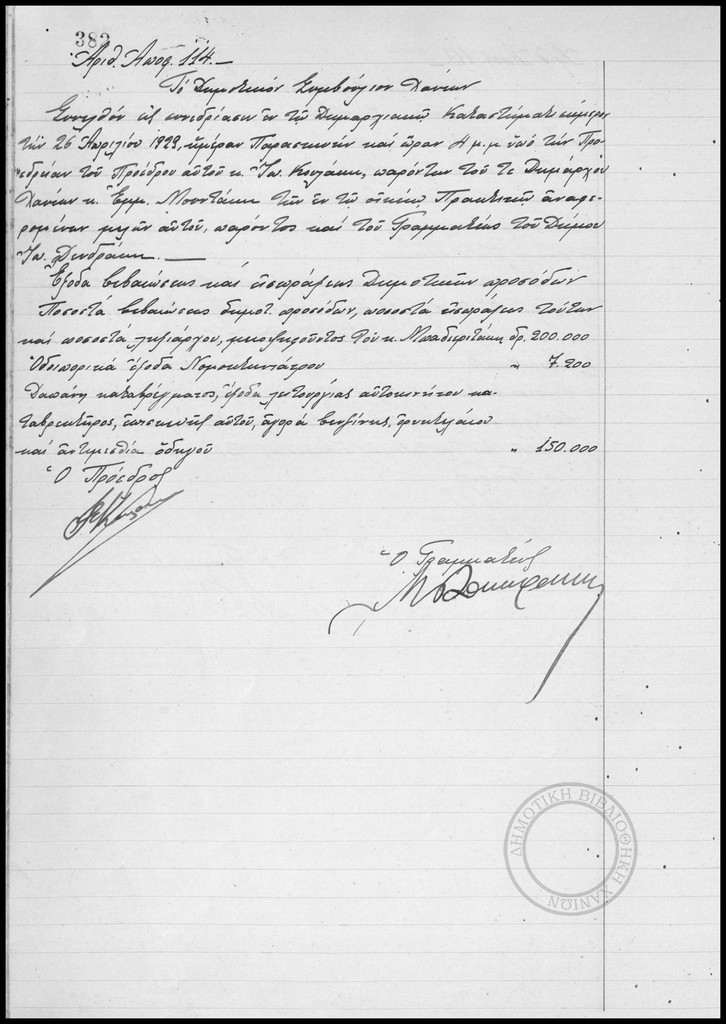 382
Ἀριθ. Ἀποφ. 114.—
Τὸ Δημοτικὸν Συμβούλιον Χανίων
Συνελθὸν εἰς συνεδρίασιν ἐν τῷ Δημαρχιακῷ Καταστήματι σήμερον
τὴν 26 Ἀπριλίου 1929, ἡμέραν Παρασκευὴν καὶ ὥραν 4 μ.μ. ὑπὸ τὴν Προ-
εδρείαν τοῦ Προέδρου αὐτοῦ κ. Ἰω. παρόντων τοῦ τε Δημάρχου
Χανίων κ. Ἐμμ. Μουντάκη τῶν ἐν τῷ οἰκείῳ Πρακτικῷ ἀναφε-
ρομένων μελῶν αὐτοῦ, παρόντος καὶ τοῦ Γραμματέως τοῦ Δήμου
Ἰω. Δενδράκη. —
Ἔξοδα βεβαιώσεως καὶ εἰσπράξεως Δημοτικῶν προσόδων
Ποσοστὰ βεβαιώσεως δημοτ. προσόδων, ποσοστὰ εἰσπράξεως τούτων
καὶ ποσοστὰ ληξιάρχου, τοῦ κ. δρ. 200.000
Ὁδοιπορικὰ ἔξοδα Νομοκτηνιάτρου " 7.200
Δαπάνη καταβρέγματος, ἔξοδα λειτουργίας αὐτοκινήτου κα-
ταβρεκτῆρος, ἐπισκευῆς αὐτοῦ, ἀγορὰ βενζίνης, ὀρυκτελαίου
καὶ ἀντιμισθία ὁδηγοῦ " 150.000
Ὁ Πρόεδρος
Ὁ Γραμματεὺς
ΔΗΜΟΤΙΚΗ ΒΙΒΛΙΟΘΗΚΗ ΧΑΝΙΩΝ